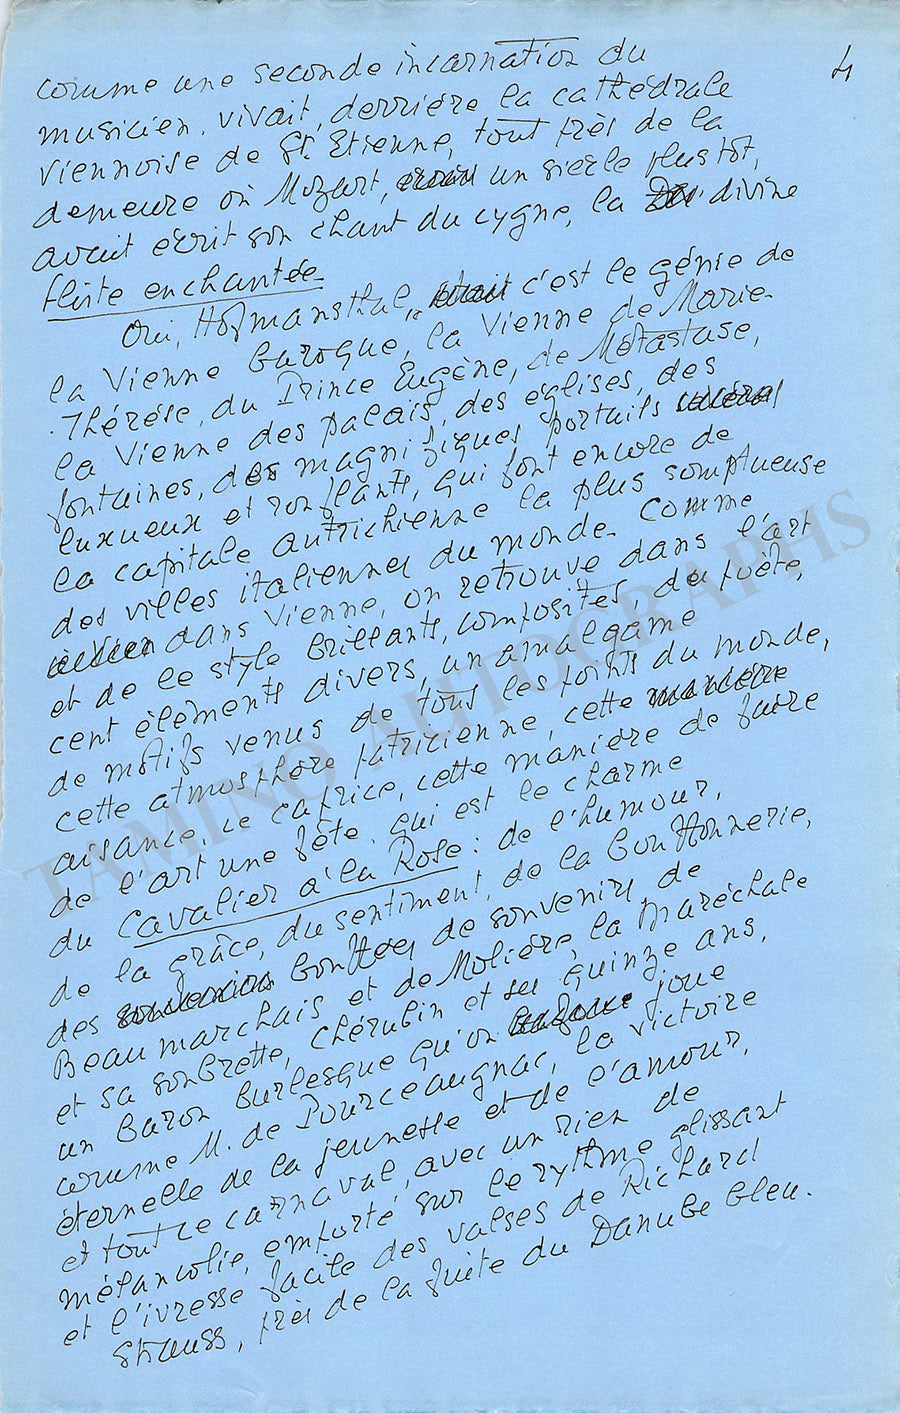 4
comme une seconde incarnation du
musicien. vivait, derrière la cathédrale
viennoise de St. Etienne, tout près de la
demeure où Mozart, un siècle plus tôt,
avait écrit son chant du cygne, la divine
flûte enchantée.
Oui, Hofmansthal, c'est le génie de
la Vienne baroque, la Vienne de Marie-
Thérèse, du Prince Eugène, de Métastase,
la Vienne des palais, des églises, des
fontaines, des magnifiques portails
luxueux et ronflants, qui font encore de
la capitale autrichienne la plus somptueuse
des villes italiennes du monde. Comme
dans Vienne, on retrouve dans l'art
et de le style brillants, composites, du poète,
cent éléments divers, un amalgame
de motifs venus de tous les points du monde,
cette atmosphère patricienne, cette
aisance, ce caprice, cette manière de faire
de l'art une fête, qui est le charme
du Cavalier à la Rose : de l'humour,
de la grâce, du sentiment, de la bouffonnerie,
des bouffées de souvenirs de
Beaumarchais et de Molière, la Maréchale
et sa soubrette, Chérubin et ses quinze ans,
un baron burlesque qu'on joue
comme M. de Pourceaugnac, la victoire
éternelle de la jeunesse et de l'amour,
et tout ce carnaval, avec un rien de
mélancolie, emporté sur le rythme glissant
et l'ivresse facile des valses de Richard
Strauss, près de la fuite du Danube bleu.
TAMINO AUTOGRAPHS